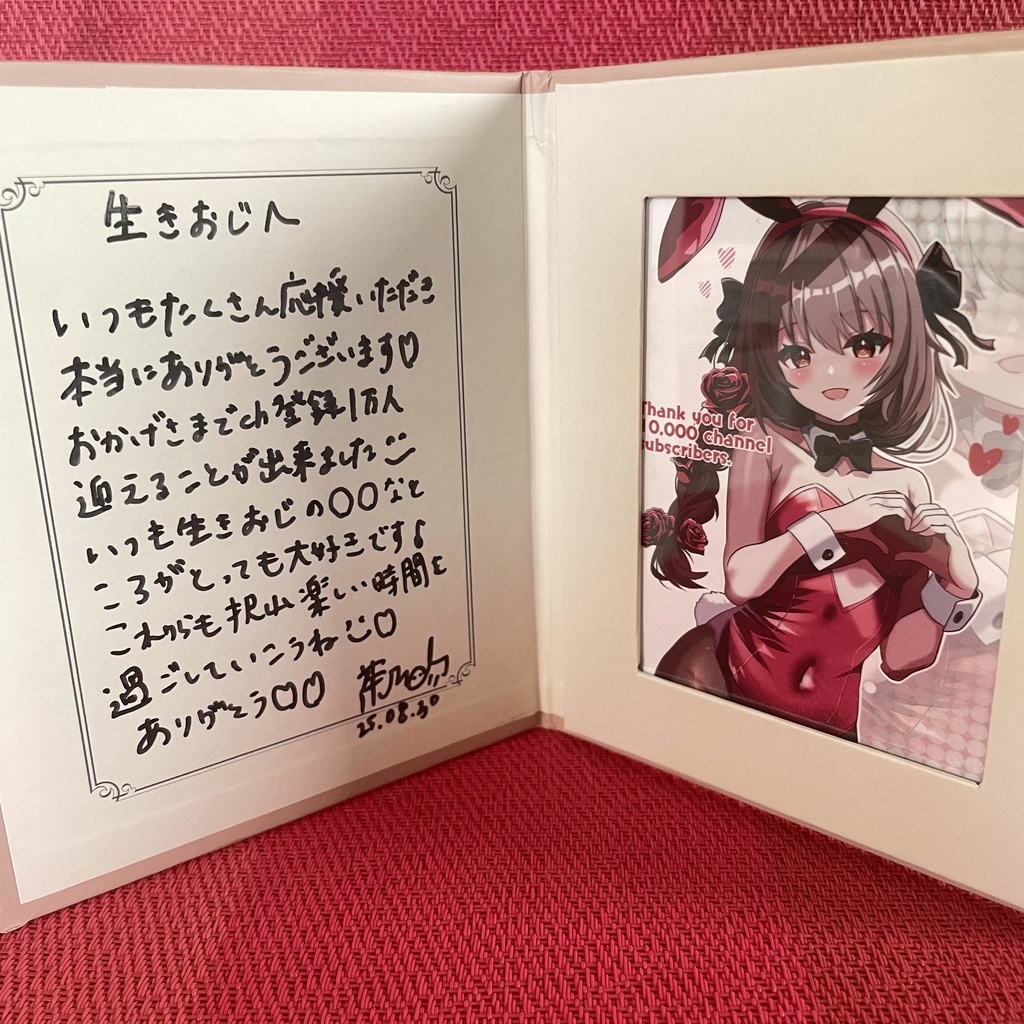 生きおじへ
いつもたくさん応援いただき
本当にありがとうございます♡
おかげさまでch登録1万人
迎えることが出来ました
いつも生きおじの〇〇なと
ころがとっても大好きです♪
これからも沢山楽しい時間を
過ごしていこうね♡
ありがとう♡♡
25.08.30
Thank you for
10,000 channel
subscribers.